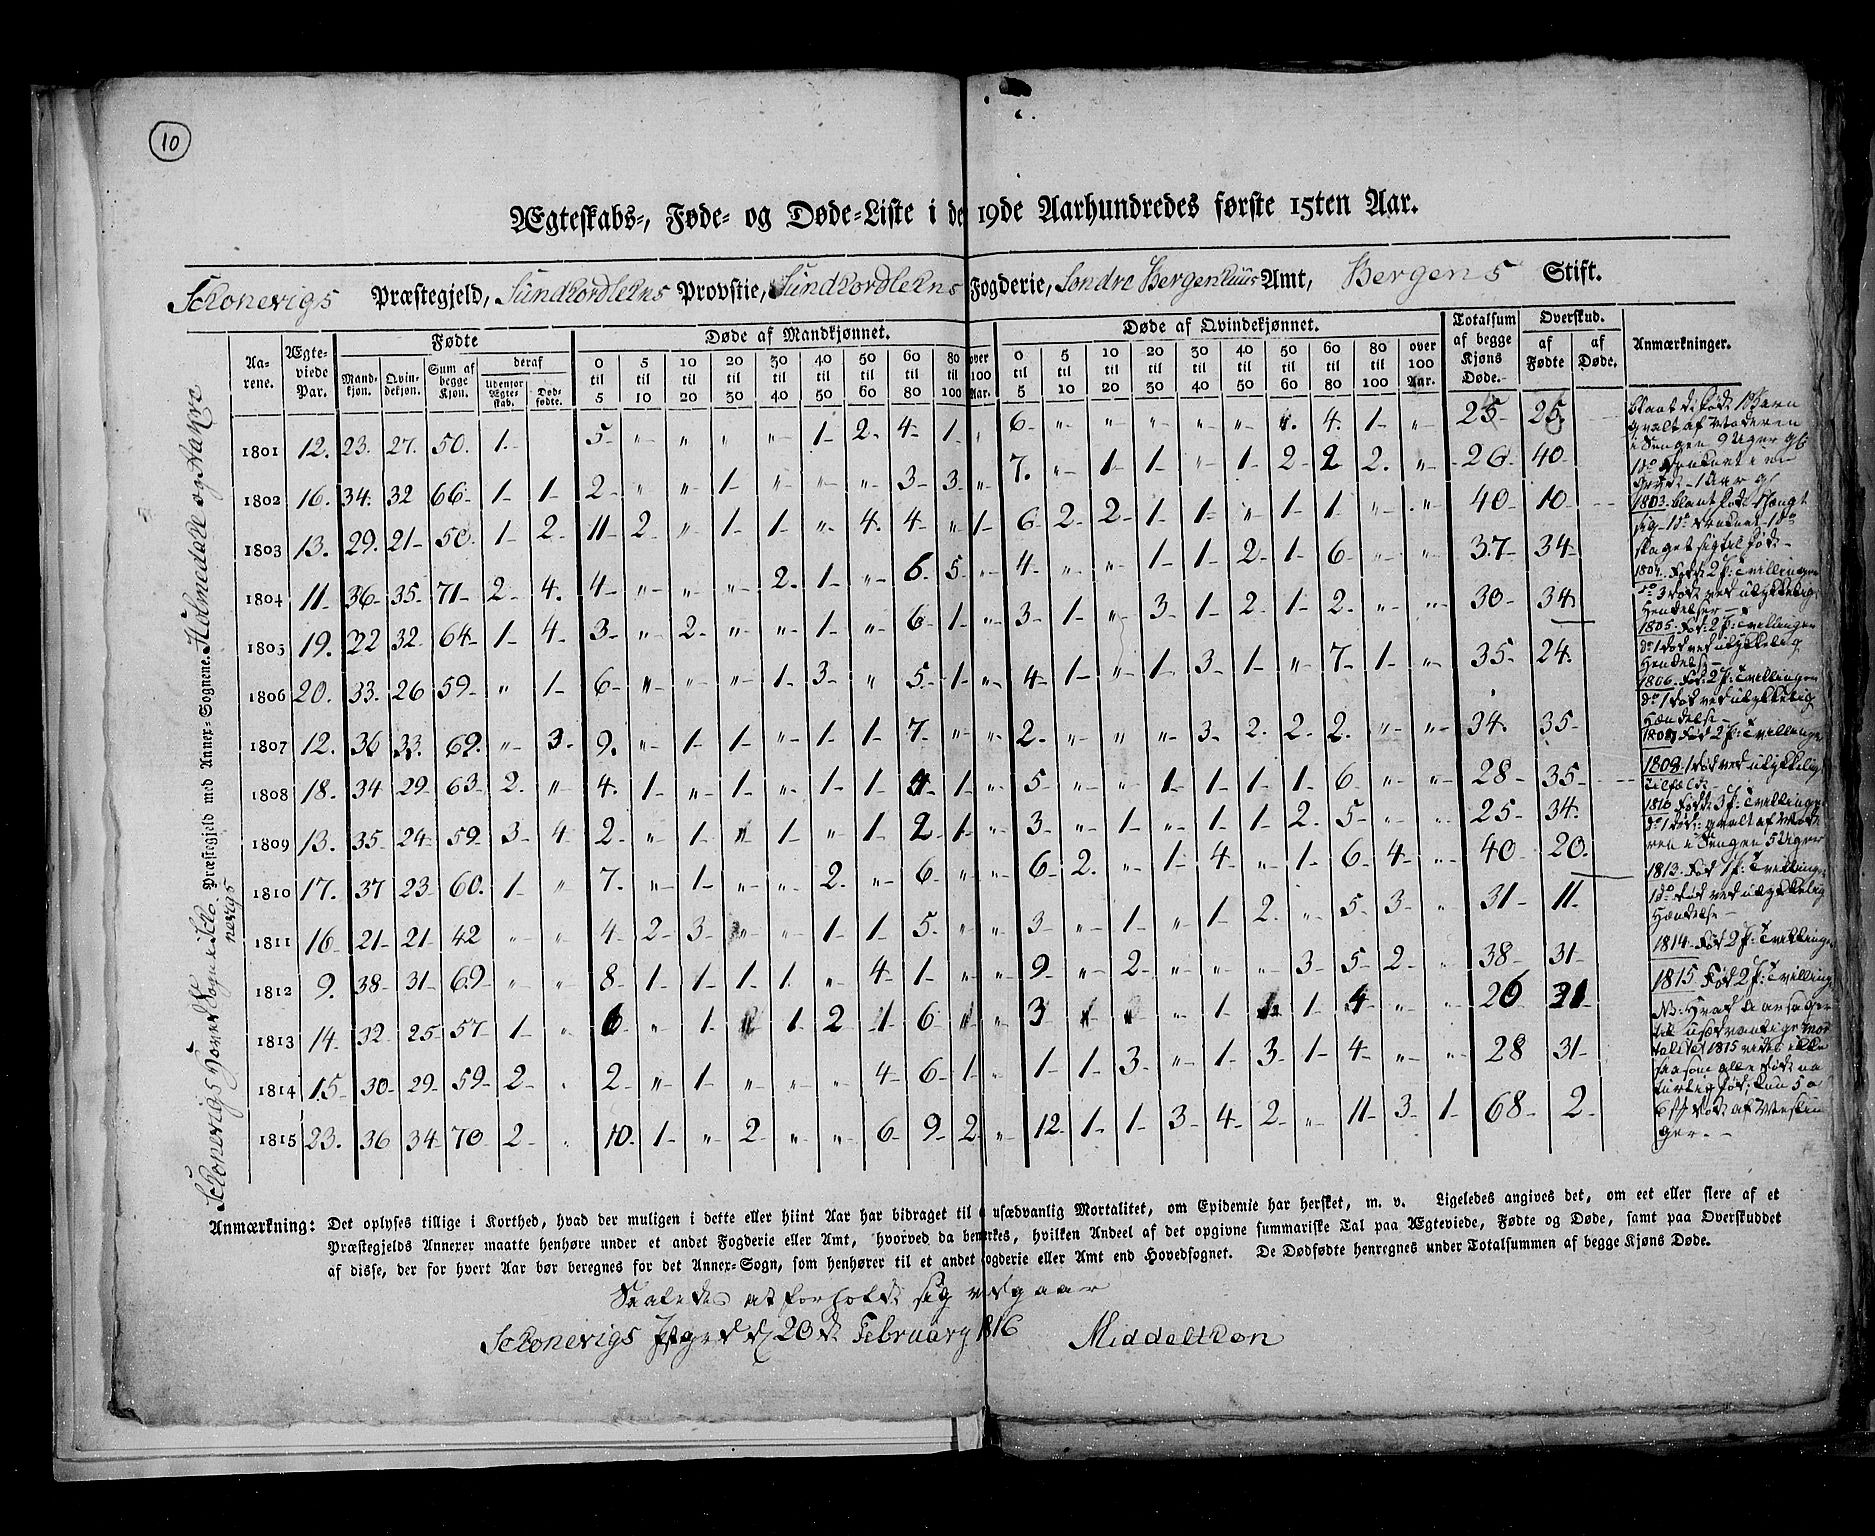 10
Ægteskabs-, Føde- og Døde-Liste i de 19de Aarhundredes første 15ten Aar.
Schonevigs Præstegjeld, Sundhordlehns Provstie, Sundhordlehns Fogderie, Søndre Bergenhuus Amt, Bergens Stift.
Schonevigs Hoved Sogn i Scho-nevigs Præstegjeld med Annex-Sognene. Holmedahl og
Aa-rene. Ægte-viede Par. Fødte Døde af Mandkjønnet. Døde af Qvindekjønnet. Totalsum af begge Kjøns Døde. Overskud. Anmærkninger.
Mand-kjøn. Qvin-dekjøn. Sum af begge Kjøn. deraf Udenfor Ægteskab. Død-fødte. af Fødte af Døde.
0 til 5 5 til 10 10 til 20 20 til 30 30 til 40 40 til 50 50 til 60 60 til 80 80 til 100 over 100 Aar. 0 til 5 5 til 10 10 til 20 20 til 30 30 til 40 40 til 50 50 til 60 60 til 80 80 til 100 over 100 Aar.
1801 12. 23. 27. 50. 1- 5- " " " " 1- 2. 4- 1- " 6- " " " " " " 4. 1- " 25- 25.
1802 16. 34. 32 66- 1- 1- 2- " " 1- " " " 3- 3- " 7. " 1- 1- " 1- 2- 2 2. " 26- 40-
1803 13. 29. 21- 50. 1- 2. 11- 2- " 1- 1- " 4. 4- " 1- 6- 2- 2- 1- 1- " 1- 1- " " 40- 10-
1804 11- 36- 35- 71- 2- 4. 4- " " " 2. 1- " 6. 5- " 4- " " 1- 1- 2- 1- 6- " " 37- 34-
1805 19. 32 32- 64- 1- 4- 3- " 2- " " 1- " 6- 1- " 3- 1- " 3- 1- 2- 1- 2- " " 30- 34.
1806 20. 33. 26 59- " 1- 6- " " " 1- 3- " 5- 1- " 4- 1- " 1- 3- 1- " 7- 1- " 35- 24.
1807 12. 36 33. 69. " 3. 9. " 1- 1- " 1- 1- 7. " " 2- " " " 3- 2. 2. 2. " " 34. 35-
1808 18. 34 29- 63- 2. " 4. 1- " 1- " 1- 1- 4 1- " 5- " " 1- 1- 1- 1- 6- " " 28- 35-
1809 13. 35- 24- 59- 3- 4 2- " 1- " 1- " 1- 2 1- " 3- " 1- " 1- 1- 2. 5- " " 25- 34.
1810 17. 37 23- 60. 1- " 7. " 1- " " 2. " 6- " " 6- 2. " 1- 4- " 1- 6- 4- " 40- 20.
1811 16- 21- 21- 42 " " 4- 2- 3- " " 1- 1- 5- " " 3- " 1- " 1- 2. " 5- 3- " 31- 11-
1812 9. 38- 31- 69- " " 8- 1- 1- 1- 1. " 4- 1- " " 9- " 2- " " " 3- 5- 2- " 38- 31-
1813 14- 32- 25- 57- 1- " 6- " 1- " 1- 2 1- 6- " " 3- " " " 1- 1- 1- 4- " " 26 31-
1814 15- 30- 29- 59- 2- " 2- " 1- " " " 4- 6- 1- " 1- 1- 3- " 1- 3- 1- 4- " " 28 31-
1815 23. 36 34- 70 2- " 10. 1- " 2- " " 6- 9- 2- " 12- 1- 1- 3- 4- 2- " 11- 3- 1- 68- 2-
Blant de fød: 1 Barn
qvalt af Moderen
i Sengen 9 Uger
1803. Blant
1804. Fød: 2 P: Tvillinger
Hendelser -
1805. Fød: 2 P: Tvillinger
do 1 død ved ulykkelig
Hendelse -
1806. Fød: 2 P: Tvillinger
do 1 død ved ulykkelig
Hændelse -
1807 Fød 2 P: Tvillinger
1808. 1 død ved ulykkelig
Tilfælde -
1810 Fødde 3 P: Tvillinger
do 1 død: qvalt af Mode
ren i Sengen 5 Uger
1813. Fød 1 P: Tvillinger
1 do død ved ulykkelig
Hændelse -
1814- Fød 2 P: Tvillinger
1815 Fød 2 P: Tvillinger
til usædvanlige Mor
talitet 1815 vides ikke
Anmærkning: Det oplyses tillige i Korthed, hvad der muligen i dette eller hiint Aar har bidraget til usædvanlig Mortalitet, om Epidemie har hersket, m. v. Ligeledes angives det, om eet eller flere af et
Præstegjelds Annexer maatte henhøre under et andet Fogderie eller Amt, hvorved da bemærkes, hvilken Andeel af det opgivne summariske Tal paa Ægteviede, Fødte og Døde, samt paa Overskuddet
af disse, der for hvert Aar bør beregnes for det Annex-Sogn, som henhører til et andet Fogderie eller Amt end Hovedsognet. De Dødfødte henregnes under Totalsummen af begge Kjøns Døde.
Saaledes at forholde sig
Schonevigs 20de February 1816 Middelthon